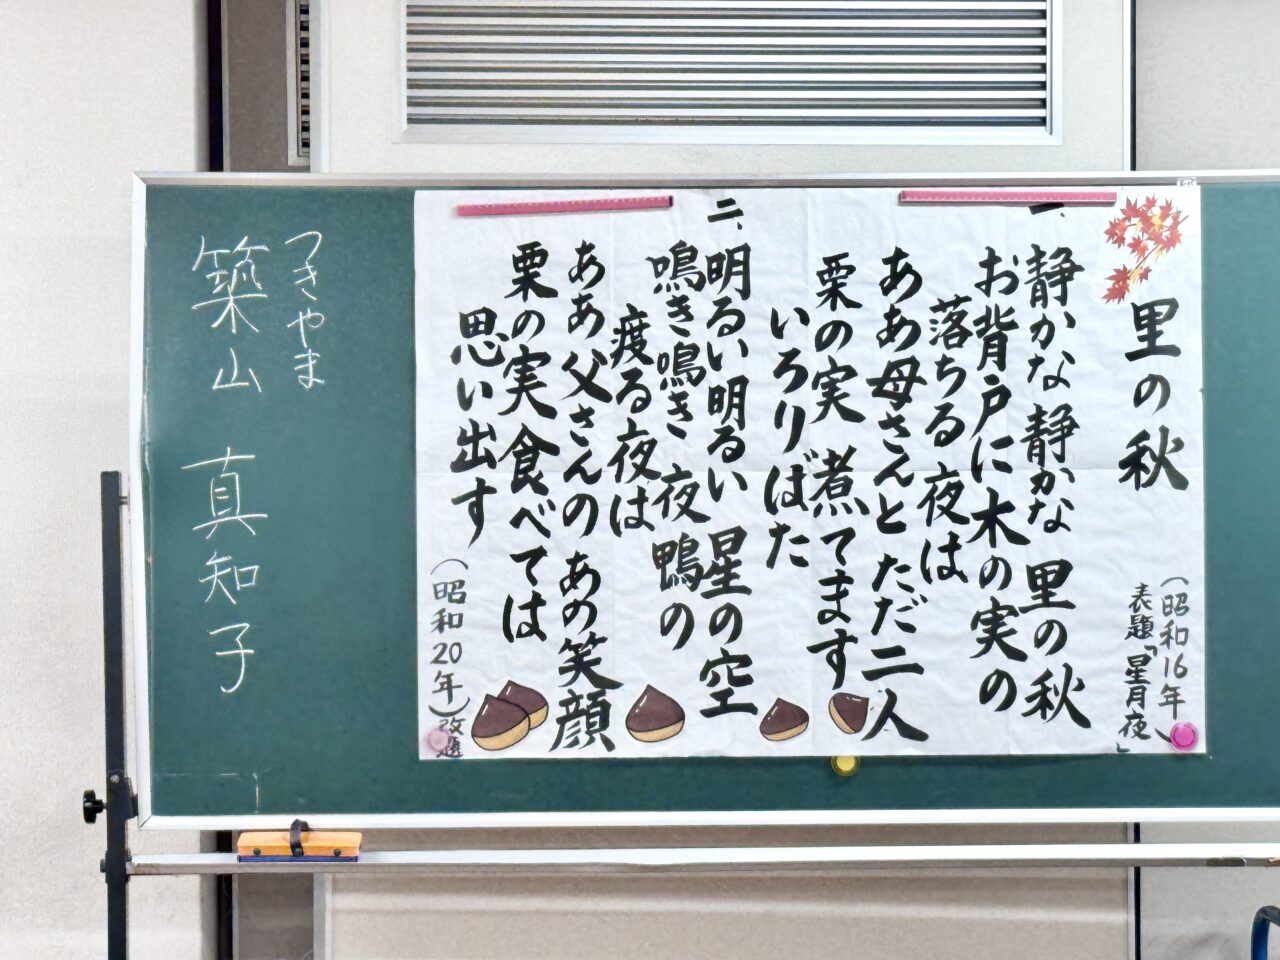 里の秋
(昭和16年)
表題「星月夜」
一、静かな静かな 里の秋
お背戸に木の実の
落ちる 夜は
ああ母さんと ただ二人
栗の実 煮てます
いろりばた
二、明るい明るい 星の空
鳴き鳴き 夜鴨の
渡る夜は
ああ父さんの あの笑顔
栗の実 食べては
思い出す
(昭和20年)改題
つきやま
築山 真知子